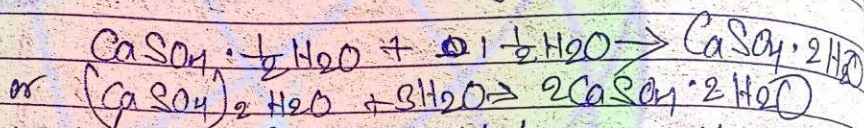 CaSO4 · ½ H2O + 1 ½ H2O → CaSO4 · 2H2O
or (CaSO4)2 H2O + 3H2O → 2CaSO4 · 2H2O